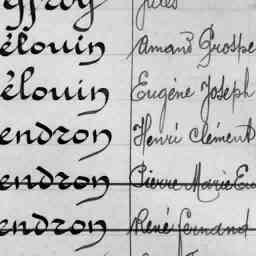 Jules
élouin Amand Prospe
élouin Eugène Joseph
endron Henri Clément
endron Pierre Marie Eu
endron René fernand